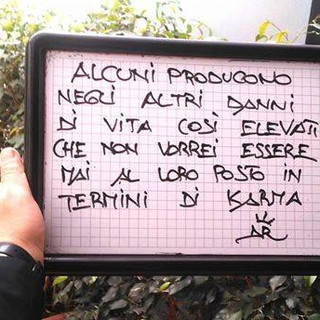 ALCUNI PRODUCONO
NEGLI ALTRI DANNI
DI VITA COSÌ ELEVATI
CHE NON VORREI ESSERE
MAI AL LORO POSTO IN
TERMINI DI KARMA
AR